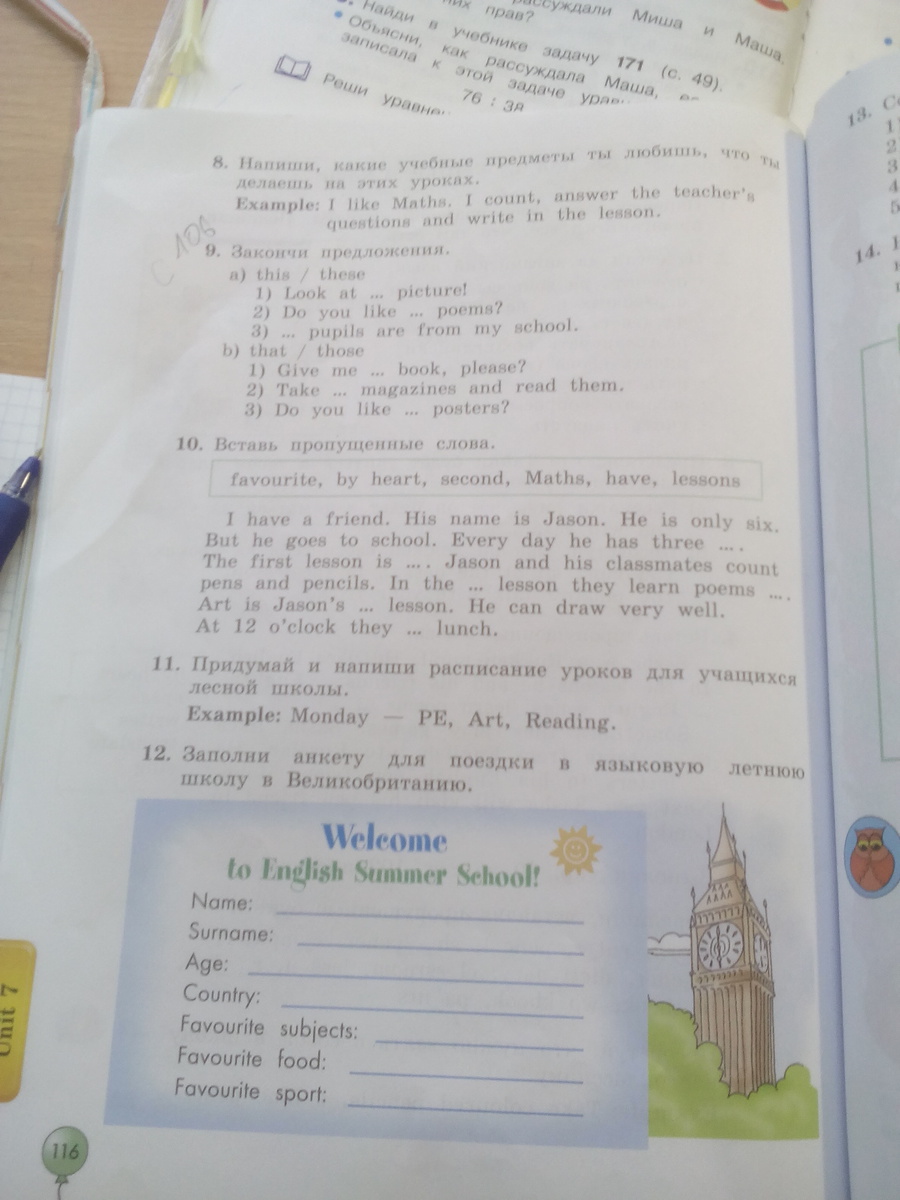 рассуждали Миша и Маша.
них прав?
Найди в учебнике задачу 171 (с. 49).
Объясни, как рассуждала Маша,
записала к этой задаче
76 :
Реши
8. Напиши, какие учебные предметы ты любишь, что ты
делаешь на этих уроках.
Example: I like Maths. I count, answer the teacher's
questions and write in the lesson.
9. Закончи предложения.
a) this / these
1) Look at ... picture!
2) Do you like ... poems?
3) ... pupils are from my school.
b) that / those
1) Give me ... book, please?
2) Take ... magazines and read them.
3) Do you like ... posters?
10. Вставь пропущенные слова.
favourite, by heart, second, Maths, have, lessons
I have a friend. His name is Jason. He is only six.
But he goes to school. Every day he has three ... .
The first lesson is ... . Jason and his classmates count
pens and pencils. In the ... lesson they learn poems ... .
Art is Jason's ... lesson. He can draw very well.
At 12 o'clock they ... lunch.
11. Придумай и напиши расписание уроков для учащихся
лесной школы.
Example: Monday — PE, Art, Reading.
12. Заполни анкету для поездки в языковую летнюю
школу в Великобританию.
Welcome
to English Summer School!
Name:
Surname:
Age:
Country:
Favourite subjects:
Favourite food:
Favourite sport:
Unit 7
116
13.
1)
2
3
4
5
14.